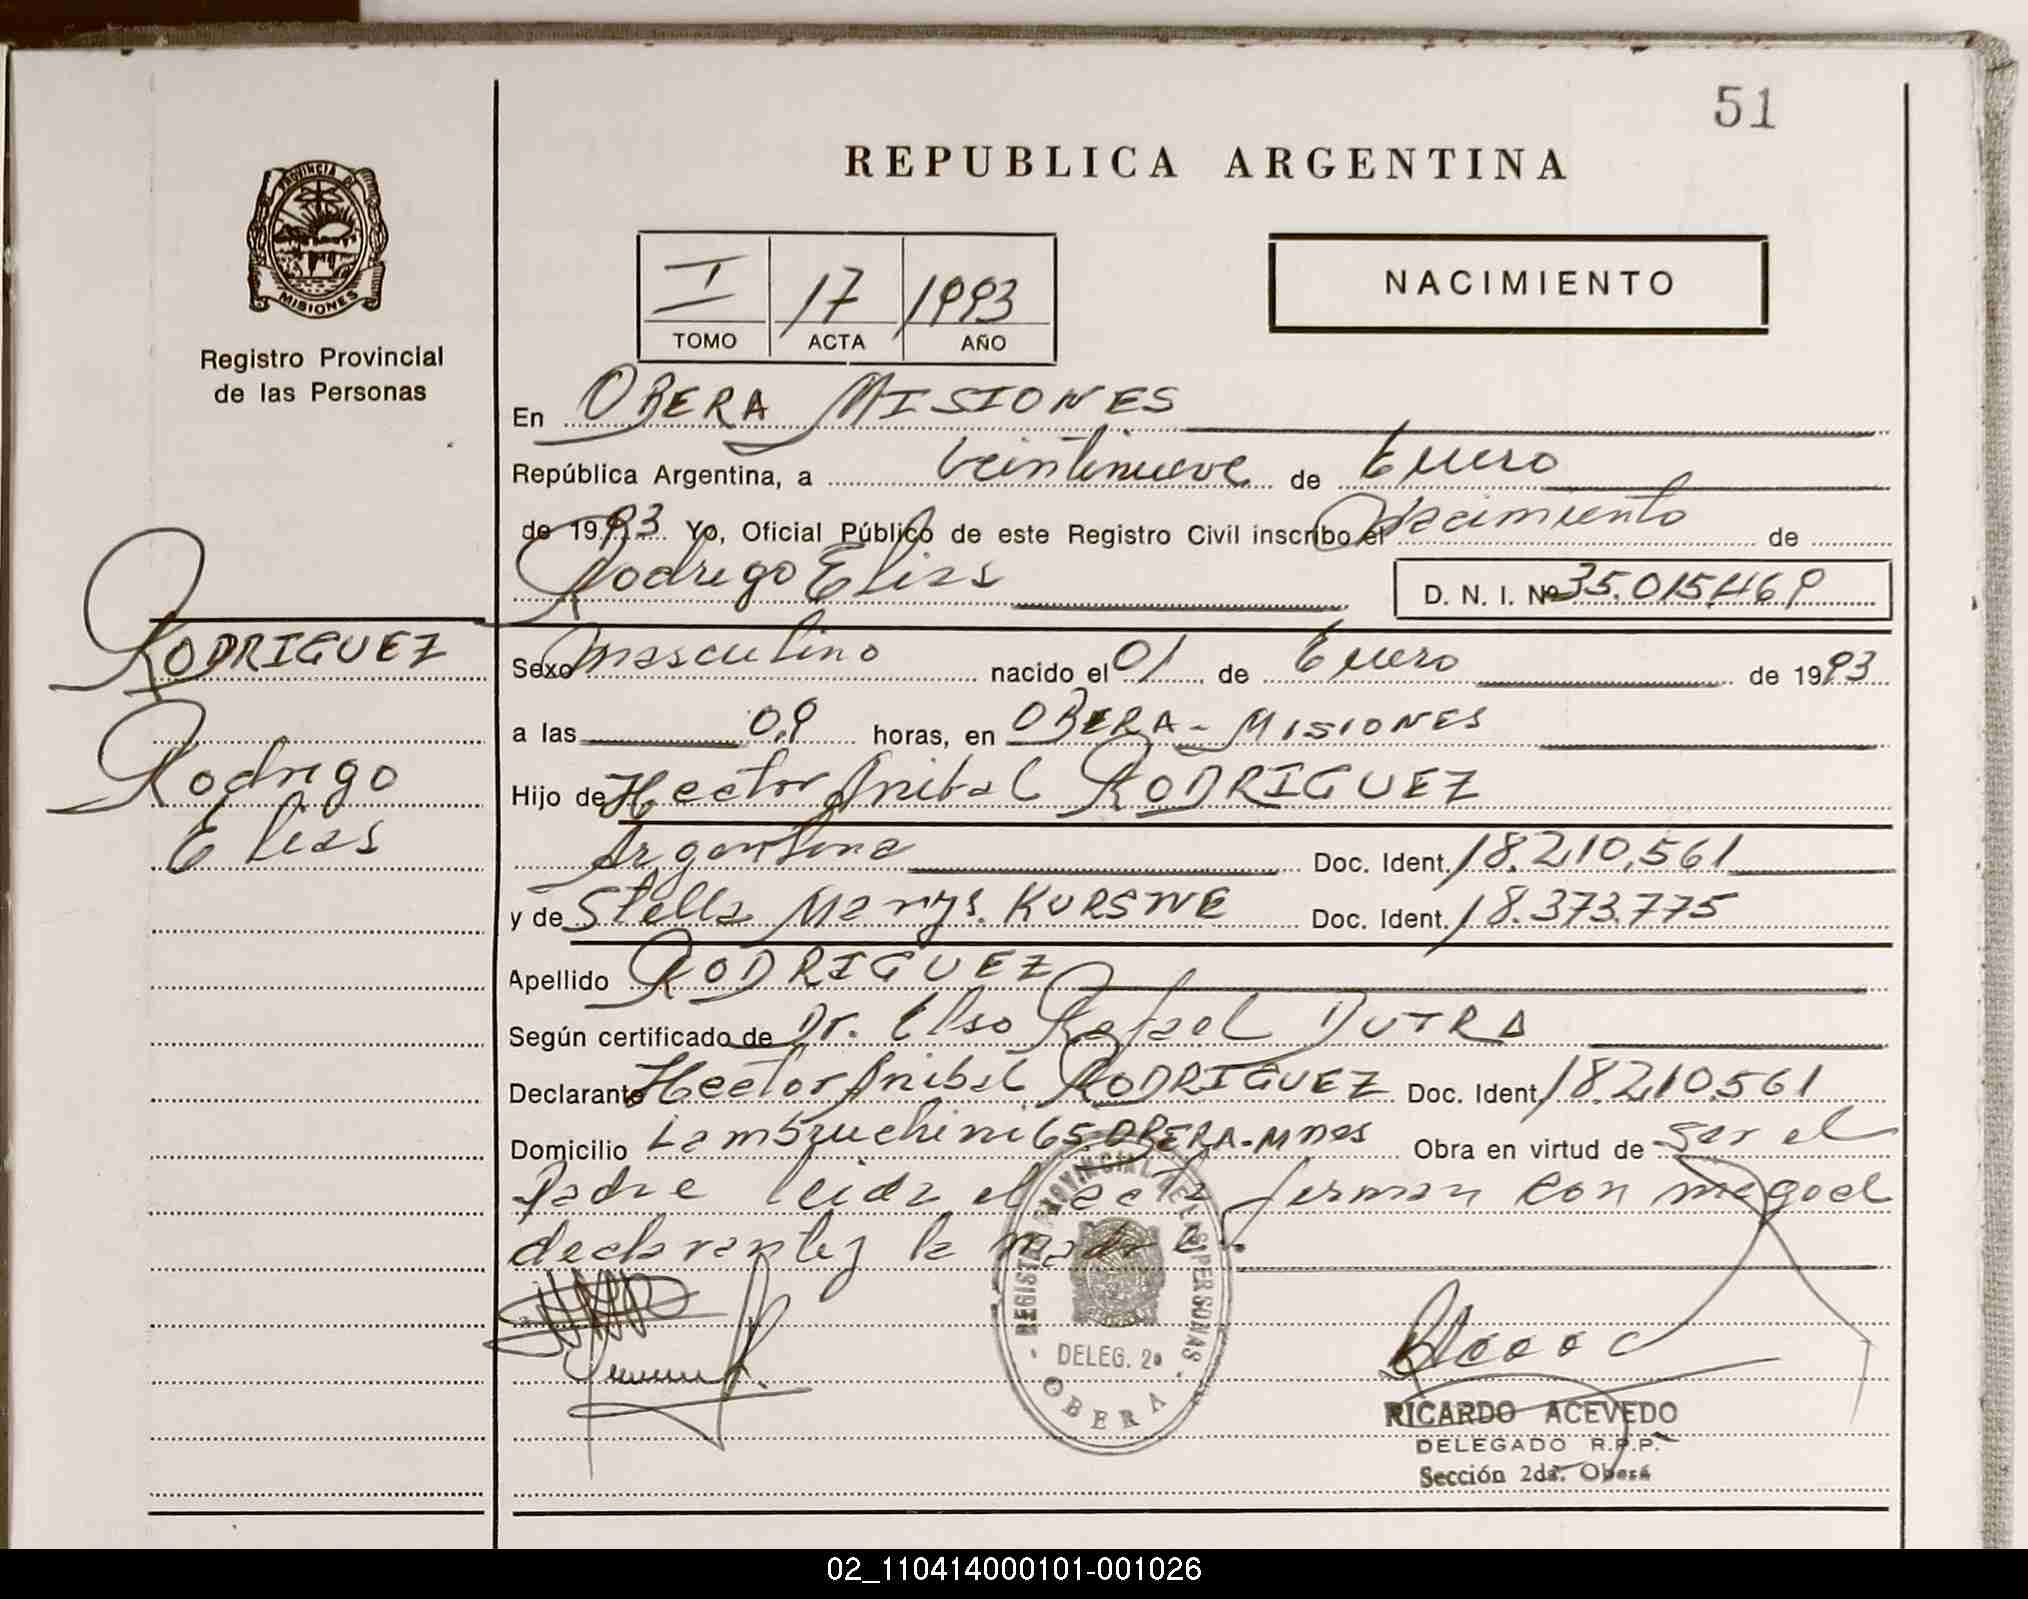 51
REPUBLICA ARGENTINA
PROVINCIA DE
MISIONES
Registro Provincial
de las Personas
I 17 1993
TOMO ACTA AÑO
NACIMIENTO
En OBERA MISIONES
República Argentina, a veintinueve de Enero
de 1993 Yo, Oficial Público de este Registro Civil inscribo el Nacimiento de
Rodrigo Elias D. N. I. Nº 35.015.469
RODRIGUEZ
Rodrigo
Elias
Sexo masculino nacido el 01 de Enero de 1993
a las 09 horas, en OBERA - MISIONES
Hijo de Hector Anibal RODRIGUEZ
Argentina Doc. Ident. 18.210.561
y de Stella Marys. Doc. Ident. 18.373.775
Apellido RODRIGUEZ
Según certificado de Dr. Elso Rafael DUTRA
Declarante Hector Anibal RODRIGUEZ Doc. Ident. 18.210.561
Domicilio 65 OBERA-Mnes Obra en virtud de ser el
Padre leida el acta firman con migo el
declarante y la madre.
REGISTRO PROVINCIAL DE LAS PERSONAS
DELEG. 2ª
OBERA
RICARDO ACEVEDO
DELEGADO R.P.P.
Sección 2da. Oberá
02_110414000101-001026